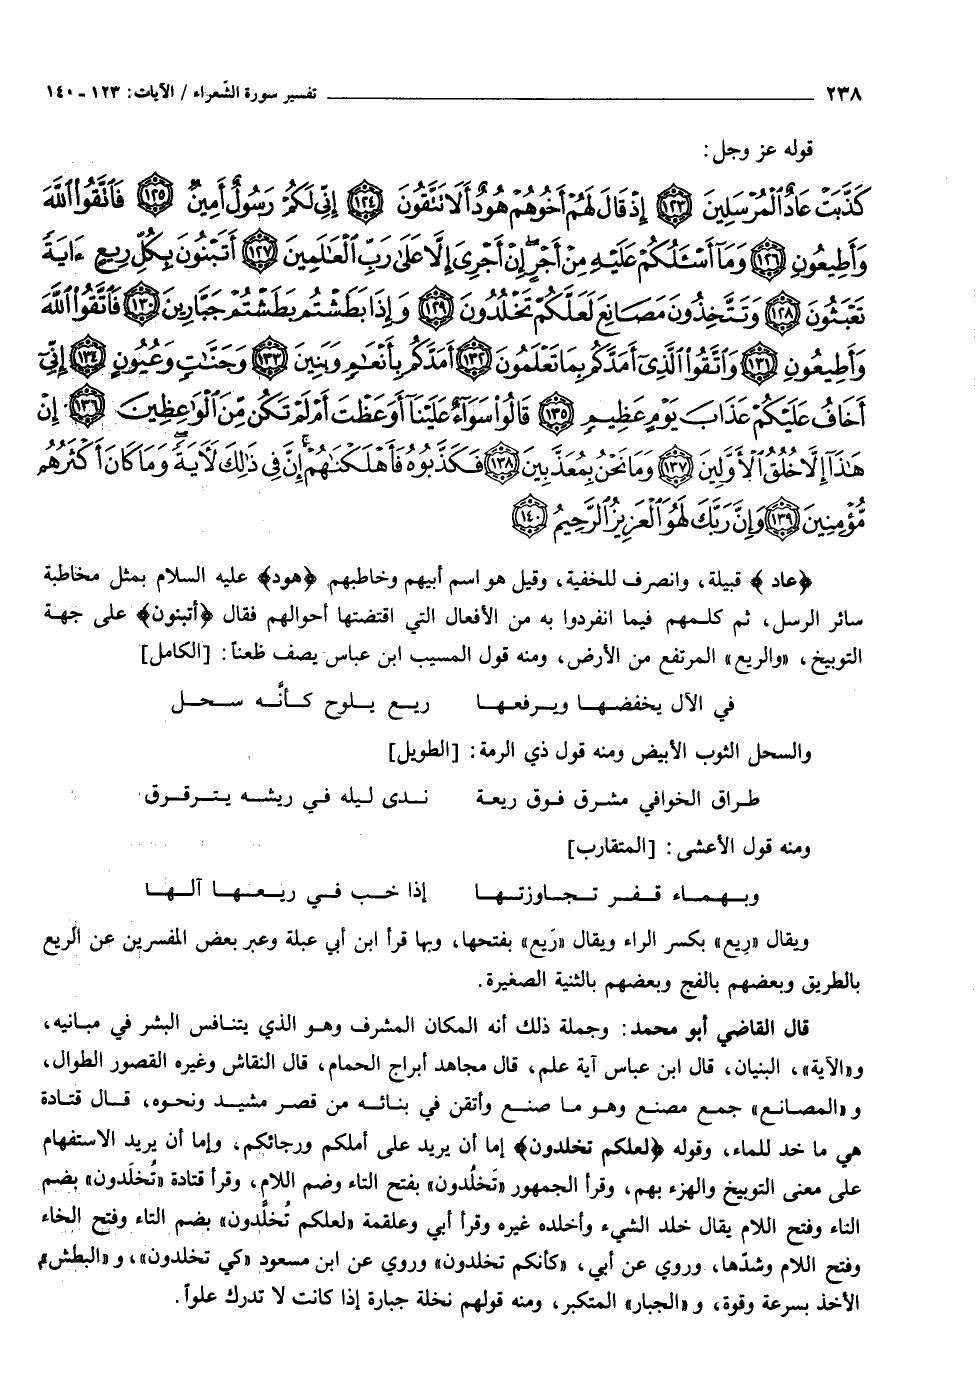 ٢٣٨ ــــــــــــــــــــ تفسير سورة الشّعراء / الآيات: ١٢٣ - ١٤٠
قوله عز وجل:
كَذَّبَتْ عَادٌ الْمُرْسَلِينَ ﴿١٢٣﴾ إِذْ قَالَ لَهُمْ أَخُوهُمْ هُودٌ أَلَا تَتَّقُونَ ﴿١٢٤﴾ إِنِّي لَكُمْ رَسُولٌ أَمِينٌ ﴿١٢٥﴾ فَاتَّقُوا اللَّهَ
وَأَطِيعُونِ ﴿١٢٦﴾ وَمَا أَسْـَٔلُكُمْ عَلَيْهِ مِنْ أَجْرٍ إِنْ أَجْرِيَ إِلَّا عَلَىٰ رَبِّ الْعَٰلَمِينَ ﴿١٢٧﴾ أَتَبْنُونَ بِكُلِّ رِيعٍ ءَايَةً
تَعْبَثُونَ ﴿١٢٨﴾ وَتَتَّخِذُونَ مَصَانِعَ لَعَلَّكُمْ تَخْلُدُونَ ﴿١٢٩﴾ وَإِذَا بَطَشْتُم بَطَشْتُمْ جَبَّارِينَ ﴿١٣٠﴾ فَاتَّقُوا اللَّهَ
وَأَطِيعُونِ ﴿١٣١﴾ وَاتَّقُوا الَّذِي أَمَدَّكُم بِمَا تَعْلَمُونَ ﴿١٣٢﴾ أَمَدَّكُم بِأَنْعَٰمٍ وَبَنِينَ ﴿١٣٣﴾ وَجَنَّٰتٍ وَعُيُونٍ ﴿١٣٤﴾ إِنِّي
أَخَافُ عَلَيْكُمْ عَذَابَ يَوْمٍ عَظِيمٍ ﴿١٣٥﴾ قَالُوا سَوَاءٌ عَلَيْنَا أَوَعَظْتَ أَمْ لَمْ تَكُن مِّنَ الْوَٰعِظِينَ ﴿١٣٦﴾ إِنْ
هَٰذَا إِلَّا خُلُقُ الْأَوَّلِينَ ﴿١٣٧﴾ وَمَا نَحْنُ بِمُعَذَّبِينَ ﴿١٣٨﴾ فَكَذَّبُوهُ فَأَهْلَكْنَٰهُمْ إِنَّ فِي ذَٰلِكَ لَآيَةً وَمَا كَانَ أَكْثَرُهُم
مُّؤْمِنِينَ ﴿١٣٩﴾ وَإِنَّ رَبَّكَ لَهُوَ الْعَزِيزُ الرَّحِيمُ ﴿١٤٠﴾
﴿عاد﴾ قبيلة، وانصرف للخفية، وقيل هو اسم أبيهم وخاطبهم ﴿هود﴾ عليه السلام بمثل مخاطبة
سائر الرسل، ثم كلمهم فيما انفردوا به من الأفعال التي اقتضتها أحوالهم فقال ﴿أتبنون﴾ على جهة
التوبيخ، «والريع» المرتفع من الأرض، ومنه قول المسيب ابن عباس يصف ظعناً: [الكامل]
في الآل يخفضها ويرفعها ريع يلوح كأنَّه سحل
والسحل الثوب الأبيض ومنه قول ذي الرمة: [الطويل]
طراق الخوافي مشرق فوق ريعة ندى ليله في ريشه يترقرق
ومنه قول الأعشى: [المتقارب]
وبهماء قفر تجاوزتها إذا خب في ريعها آلها
ويقال «رِيع» بكسر الراء ويقال «رَيع» بفتحها، وبها قرأ ابن أبي عبلة وعبر بعض المفسرين عن الريع
بالطريق وبعضهم بالفج وبعضهم بالثنية الصغيرة.
قال القاضي أبو محمد: وجملة ذلك أنه المكان المشرف وهو الذي يتنافس البشر في مبانيه،
و«الآية»، البنيان، قال ابن عباس آية علم، قال مجاهد أبراج الحمام، قال النقاش وغيره القصور الطوال،
و«المصانع» جمع مصنع وهو ما صنع وأتقن في بنائه من قصر مشيد ونحوه، قال قتادة
هي ما خد للماء، وقوله ﴿لعلكم تخلدون﴾ إما أن يريد على أملكم ورجائكم، وإما أن يريد الاستفهام
على معنى التوبيخ والهزء بهم، وقرأ الجمهور «تَخلُدون» بفتح التاء وضم اللام، وقرأ قتادة «تُخلَدون» بضم
التاء وفتح اللام يقال خلد الشيء وأخلده غيره وقرأ أبي وعلقمة «لعلكم تُخلَّدون» بضم التاء وفتح الخاء
وفتح اللام وشدّها، وروي عن أبي، «كأنكم تخلدون» وروي عن ابن مسعود «كي تخلدون»، و«البطش»
الأخذ بسرعة وقوة، و«الجبار» المتكبر، ومنه قولهم نخلة جبارة إذا كانت لا تدرك علواً.